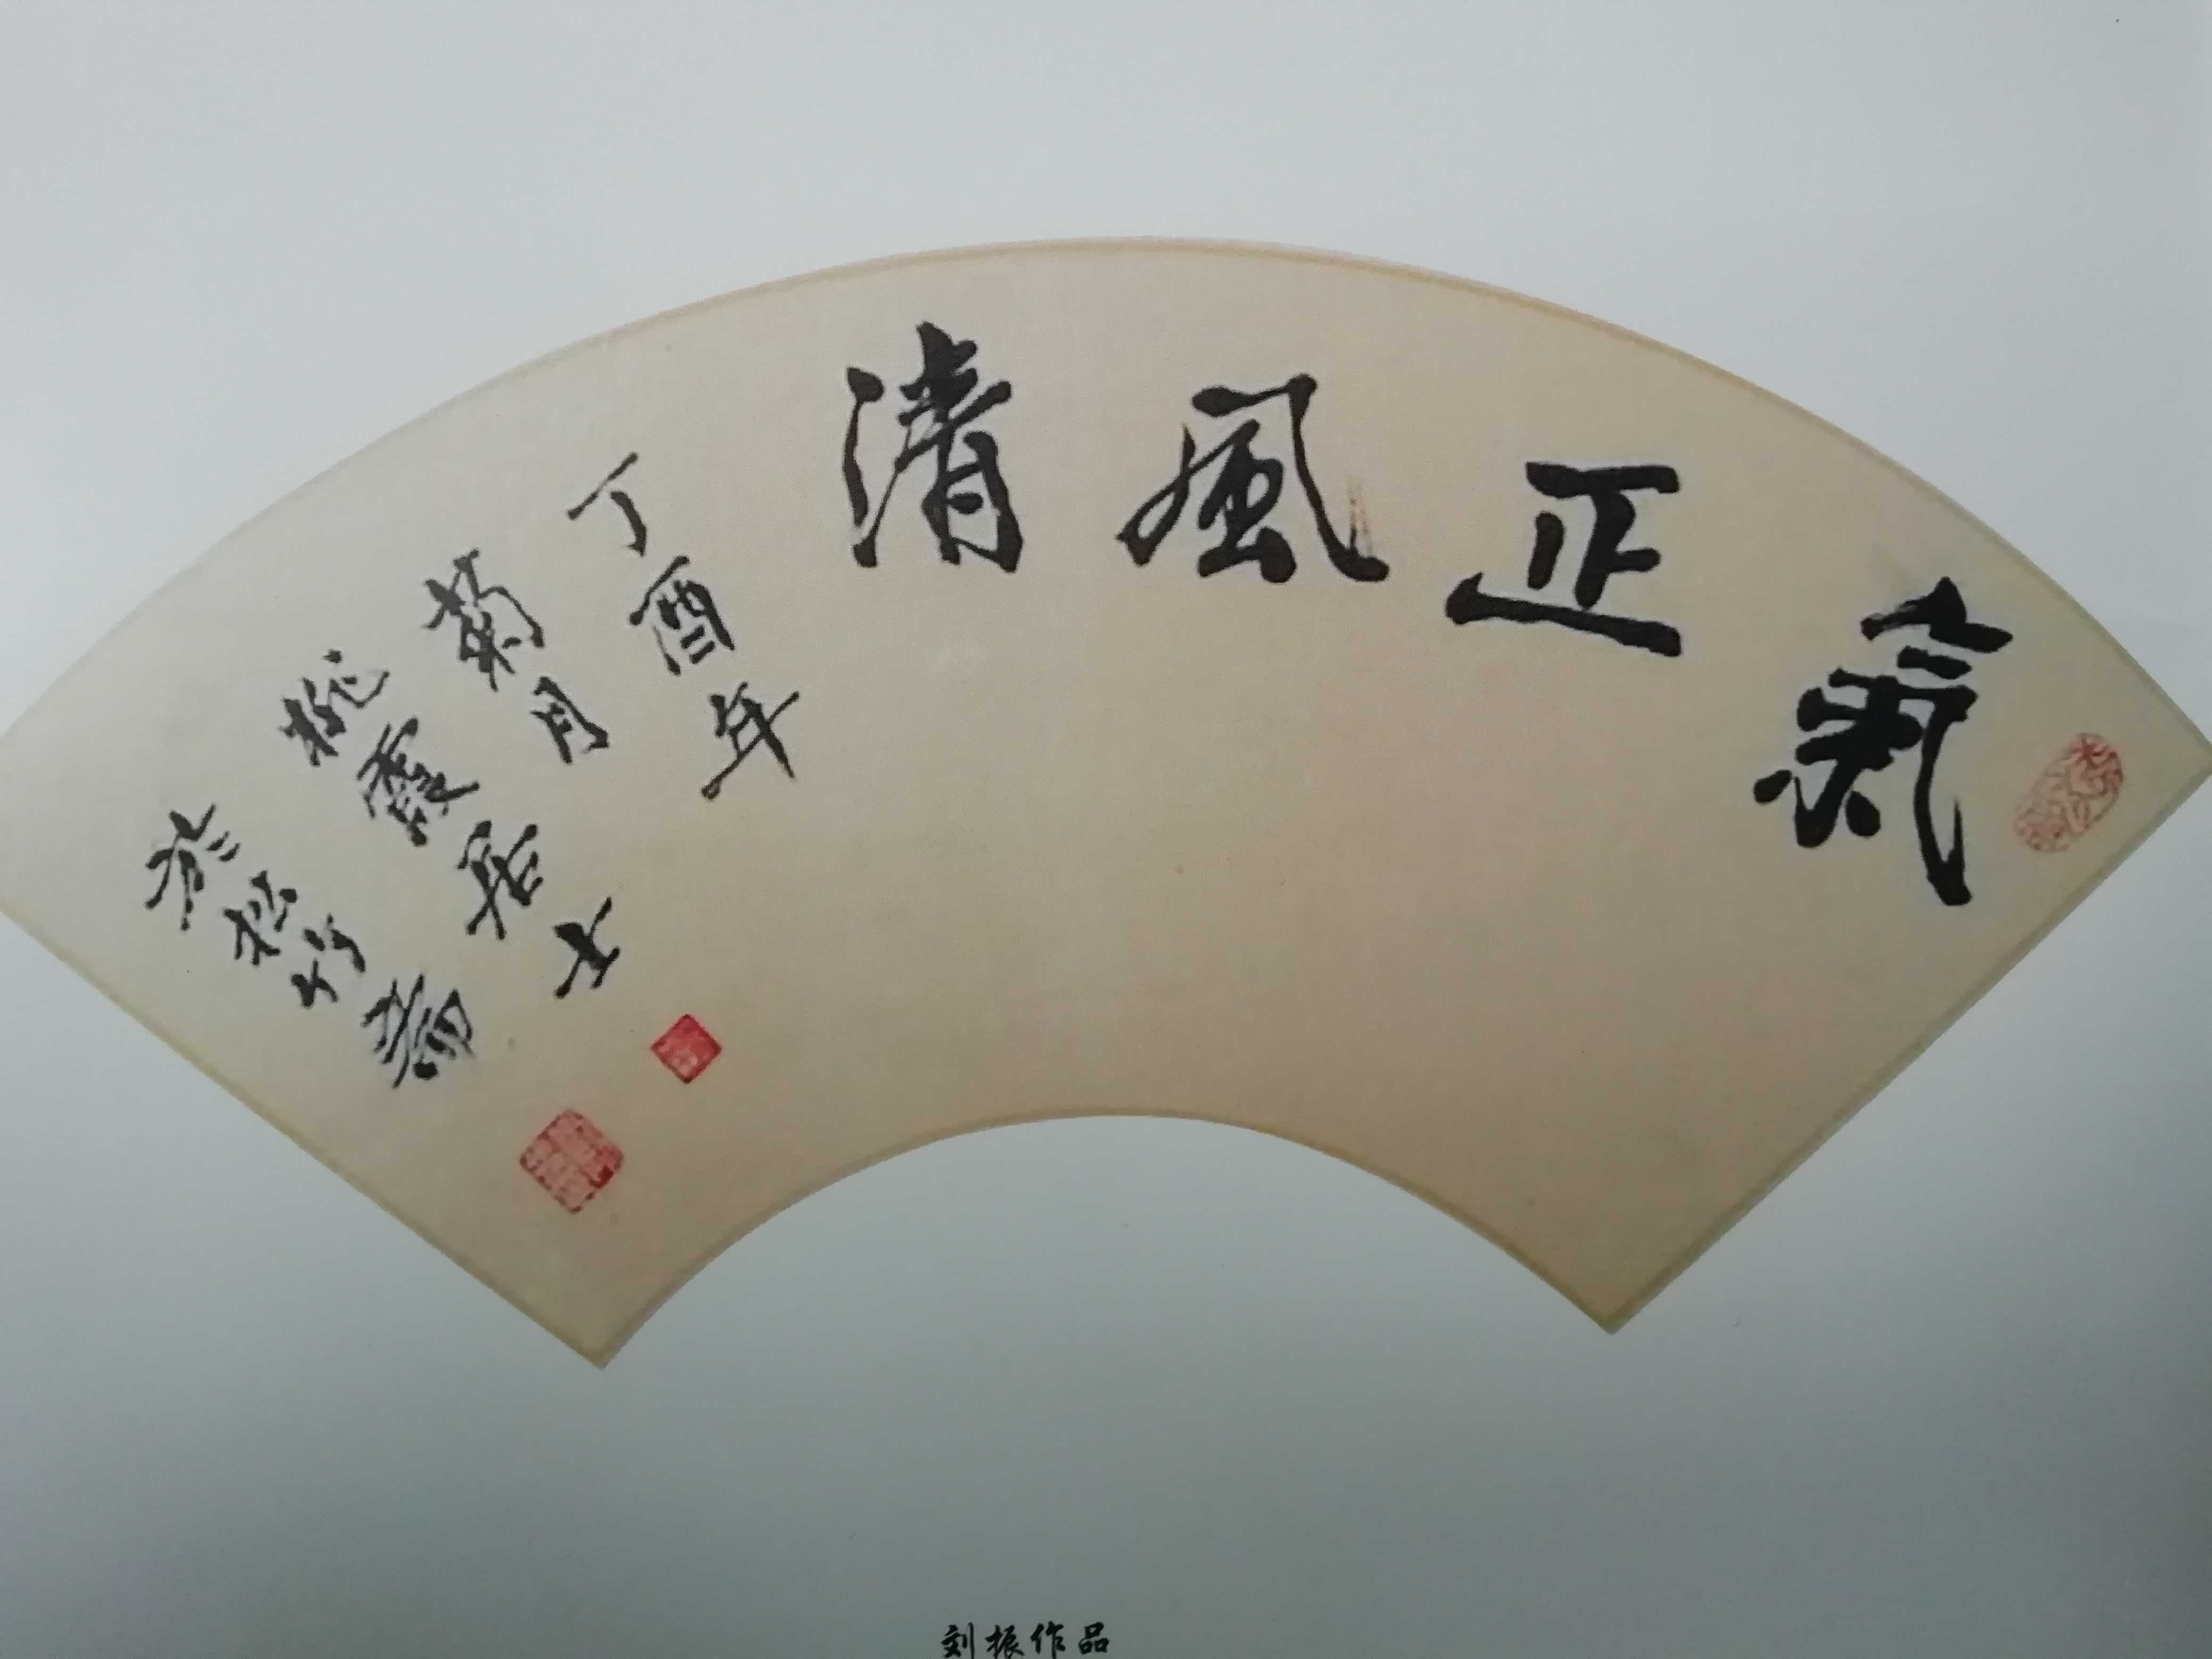 氣正風清
丁酉年
菊月
桃霞居士
於松竹斋
刘振作品